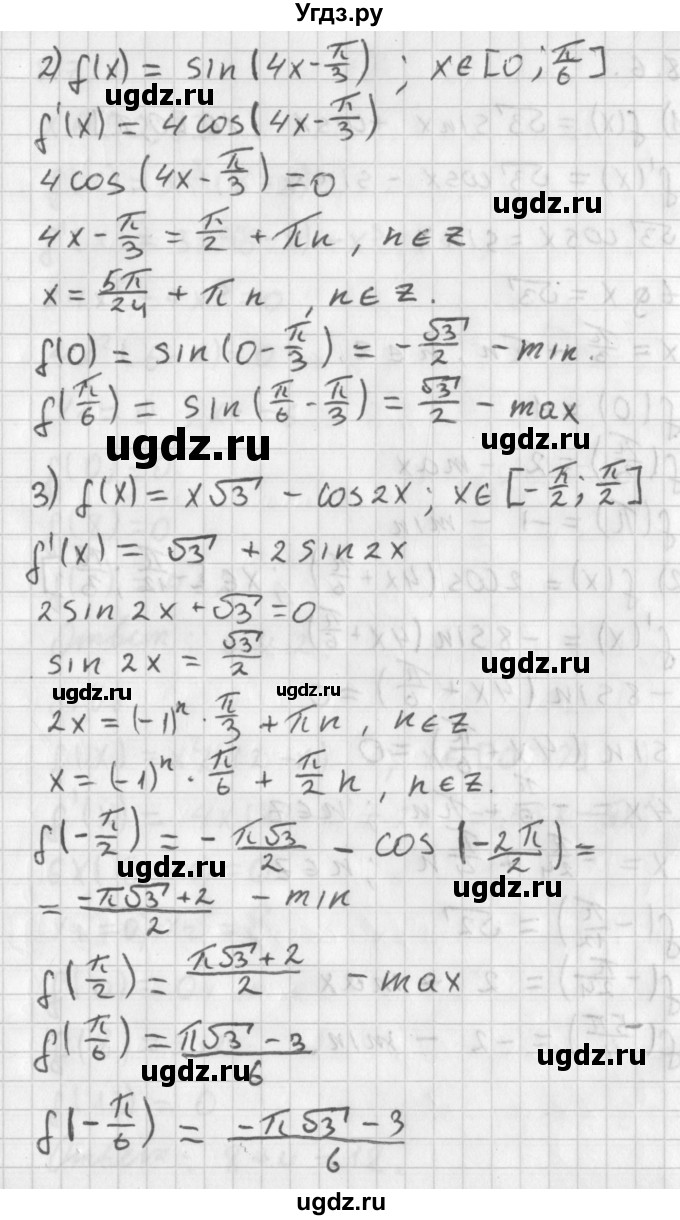 Угдз.ру
2) f(x) = sin(4x - π/3) ; x∈[0; π/6]
ugdz.ru
f'(x) = 4cos(4x - π/3)
4cos(4x - π/3) = 0
ugdz.ru
4x - π/3 = π/2 + πn, n∈Z
x = 5π/24 + πn, n∈Z.
f(0) = sin(0 - π/3) = -√3/2 - min.
f(π/6) = sin(π/6 - π/3) = √3/2 - max
ugdz.ru ugdz.ru
3) f(x) = x√3 - cos2x; x∈[-π/2; π/2]
f'(x) = √3 + 2sin2x
2sin2x + √3 = 0
sin 2x = √3/2
ugdz.ru
ugdz.ru ugdz.ru
2x = (-1)ⁿ · π/3 + πn, n∈Z
x = (-1)ⁿ · π/6 + π/2 n, n∈Z.
f(-π/2) = -π√3/2 - cos(-2π/2) =
ugdz.ru ugdz.ru
= (-π√3 + 2)/2 - min
f(π/2) = (π√3 + 2)/2 - max
f(π/6) = (π√3 - 3)/6
ugdz.ru ugdz.ru
f(-π/6) = (-π√3 - 3)/6
ugdz.ru